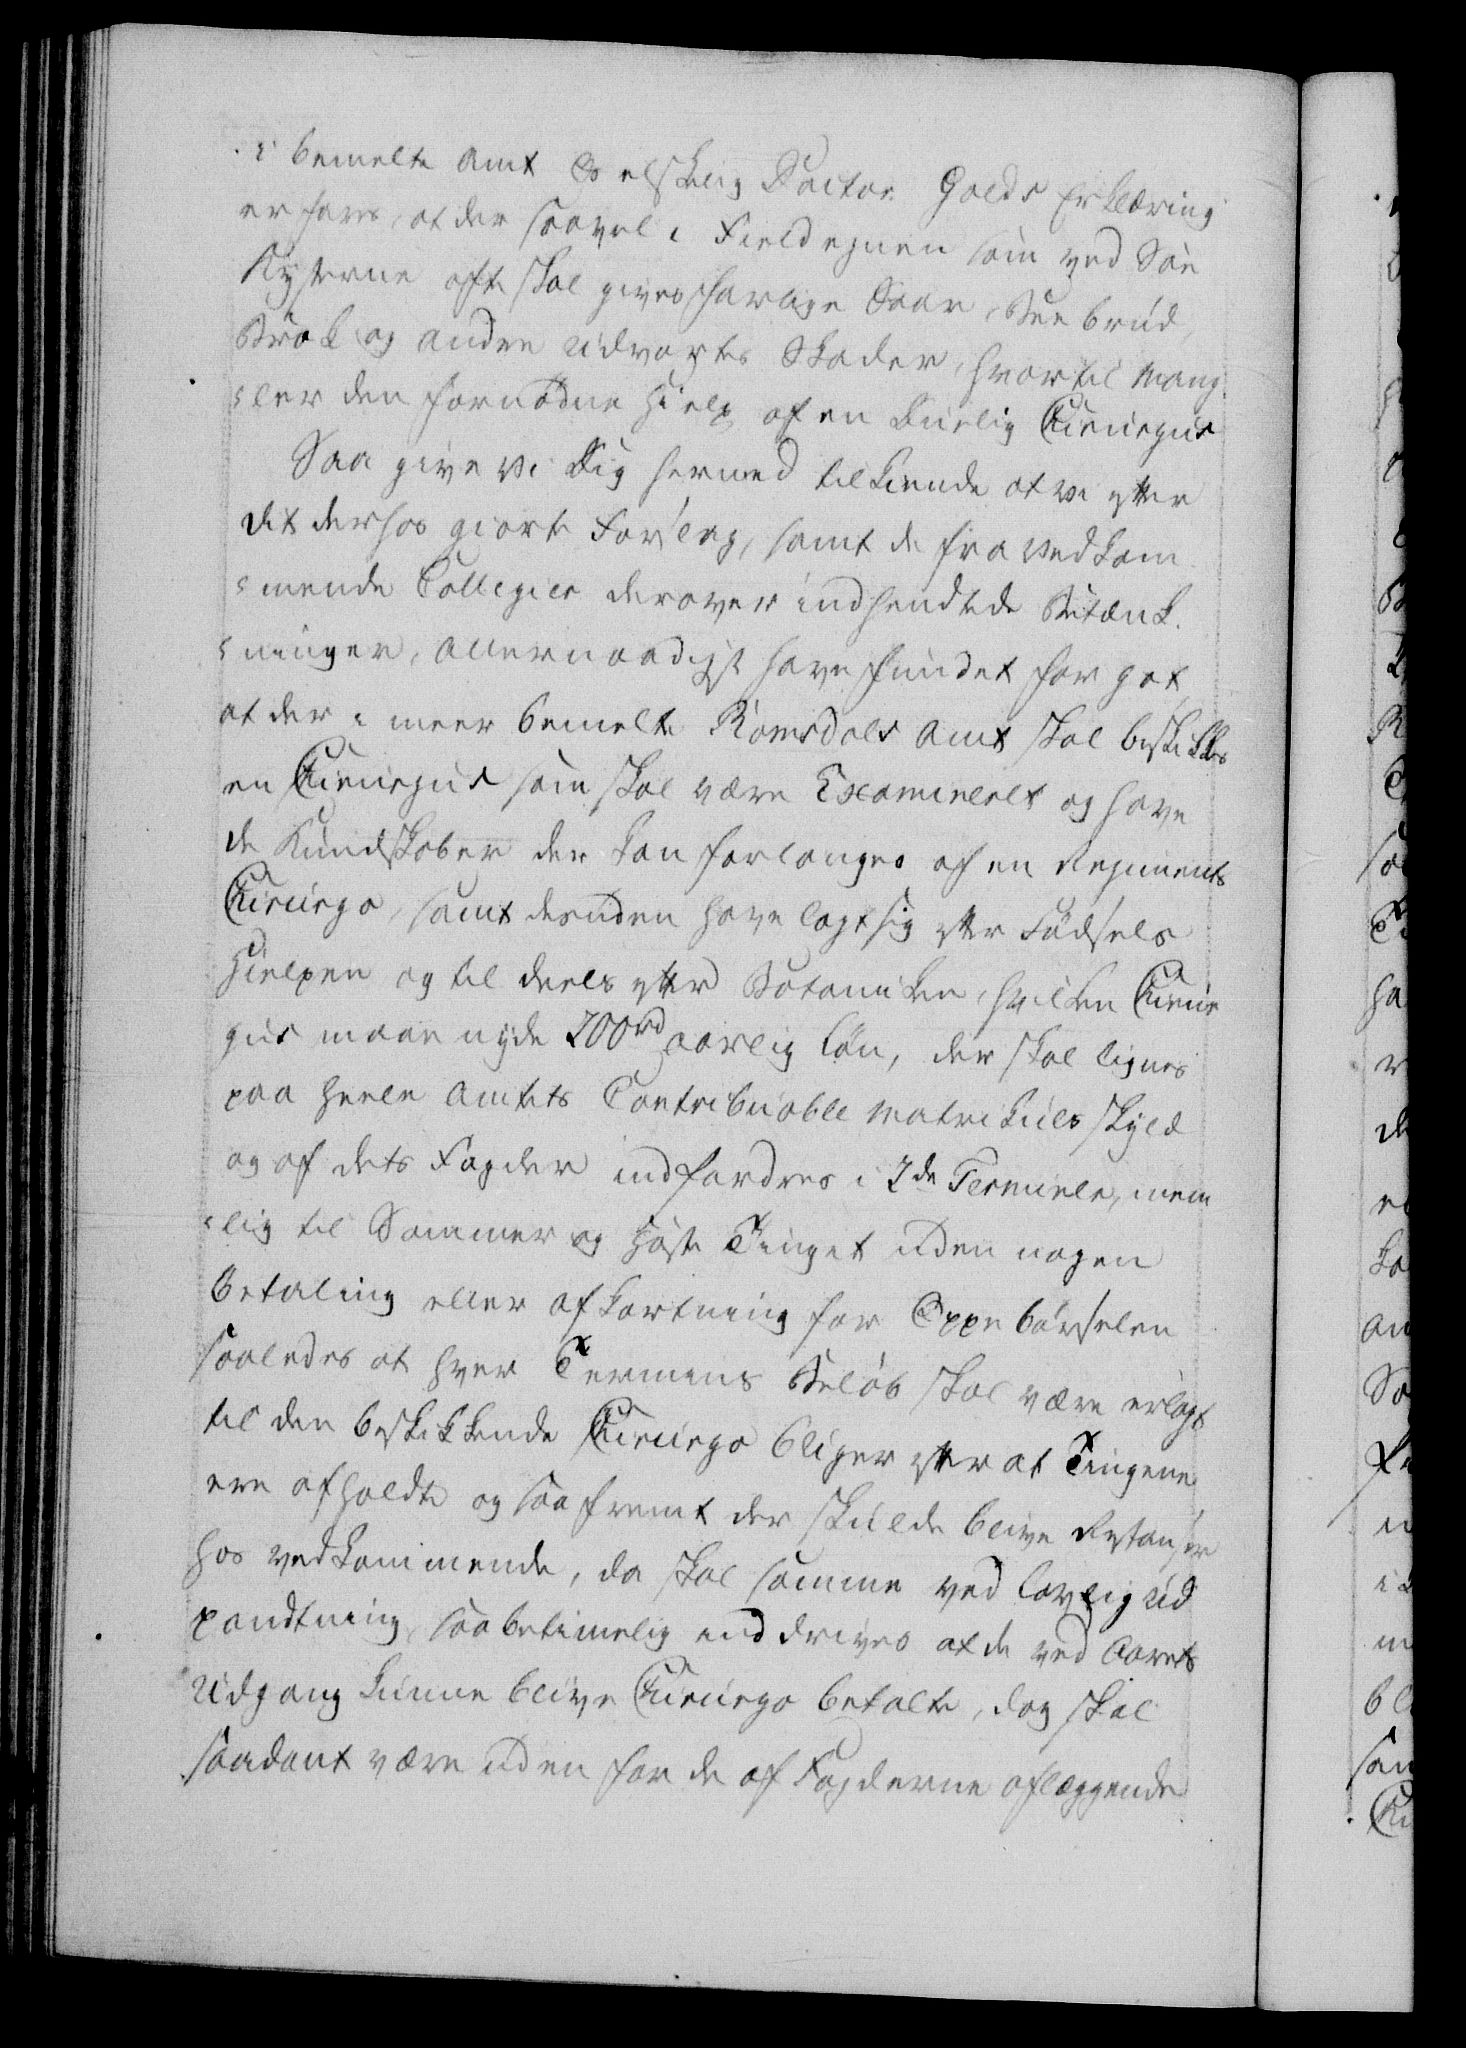 i bemelte Amt Os elskelig Doctor Golds Erklæring
erfares, at der saavel i Fieldegnen som ved Søe
Kysterne ofte skal gives farlige Saar, Beenbrud,
Brok og andre udvortes Skader, hvortil mang
ler den fornødne Hielp af en duelig Chirurgus
Saa give vi Dig hermed tilkiende at vi efter
dit derhos giorte Forslag, samt de fra vedkom
mende Collegier derover indhendtede Betænk
ninger, allernaadigst have fundet for got,
at der i meer bemelte Romsdals Amt skal beskikkes
en Chirurgus som skal være Examineret og have
de Kundskaber der kan forlanges af en Regiments
Chirurgo, samt desuden have lagt sig efter Fødsels
Hielpen og til deels efter Botaniken, hvilken Chirur
gus maae nyde 200 rd aarlig Løn, der skal lignes
paa heele Amtets Contribuable Matrikuls Skyld
og af dets Fogder indfordres i 2de Terminer, nem
lig til Sommer og Høste Tinget uden nogen
Betaling eller afkortning for Oppebørselen
saaledes at hver Termins Beløb skal være erlagt
til den beskikkende Chirurgo 6 Uger efter at Tingene
ere afholdte og saafremt der skulde blive Restanser
hos vedkommende, da skal samme ved lovlig Ud
pandtning, saa betimelig inddrives at de ved Aarets
Udgang kunne blive Chirurgo betalte, dog skal
saadant være uden for de af Fogderne aflæggende